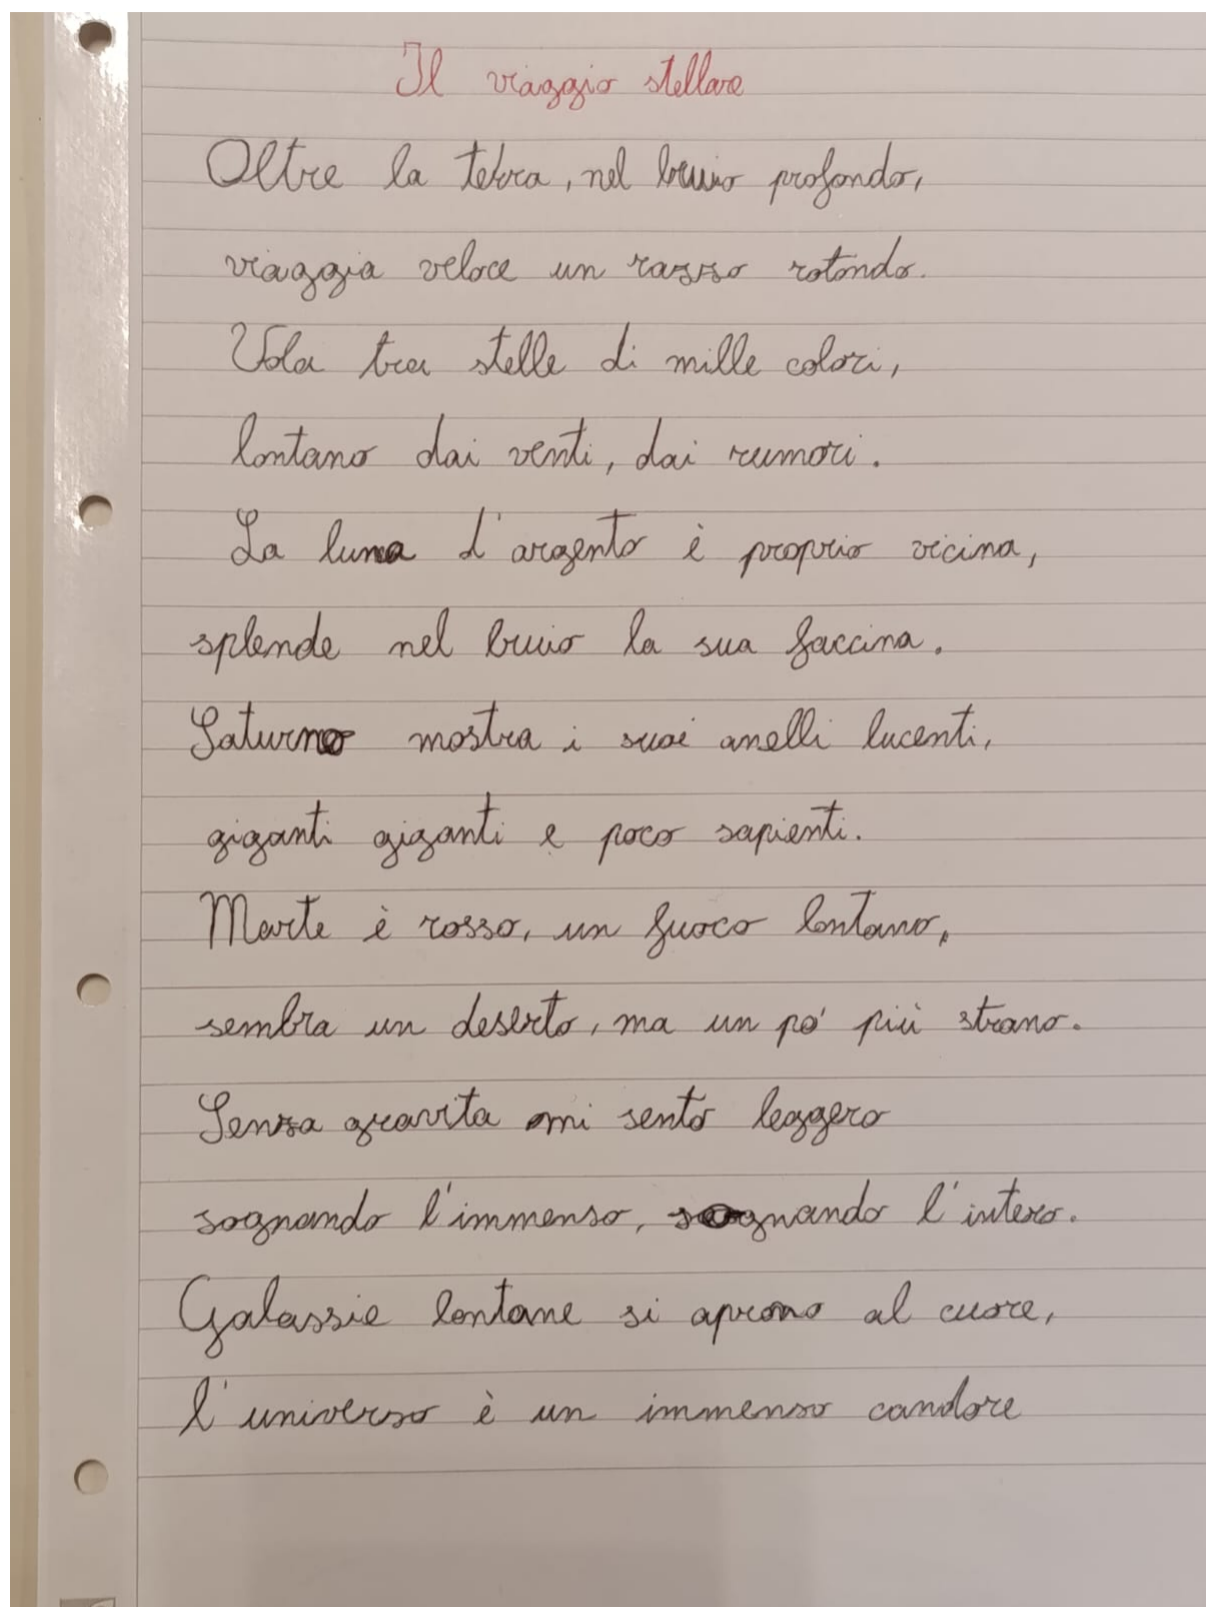 Il viaggio stellare
Oltre la terra, nel buio profondo,
viaggia veloce un razzo rotondo.
Vola tra stelle di mille colori,
lontano dai venti, dai rumori.
La luna d'argento è proprio vicina,
splende nel buio la sua faccina.
Saturno mostra i suoi anelli lucenti,
giganti giganti e poco sapienti.
Marte è rosso, un fuoco lontano,
sembra un deserto, ma un po' più strano.
Senza gravita mi sento leggero
sognando l'immenso, sognando l'intero.
Galassie lontane si aprono al cuore,
l'universo è un immenso candore